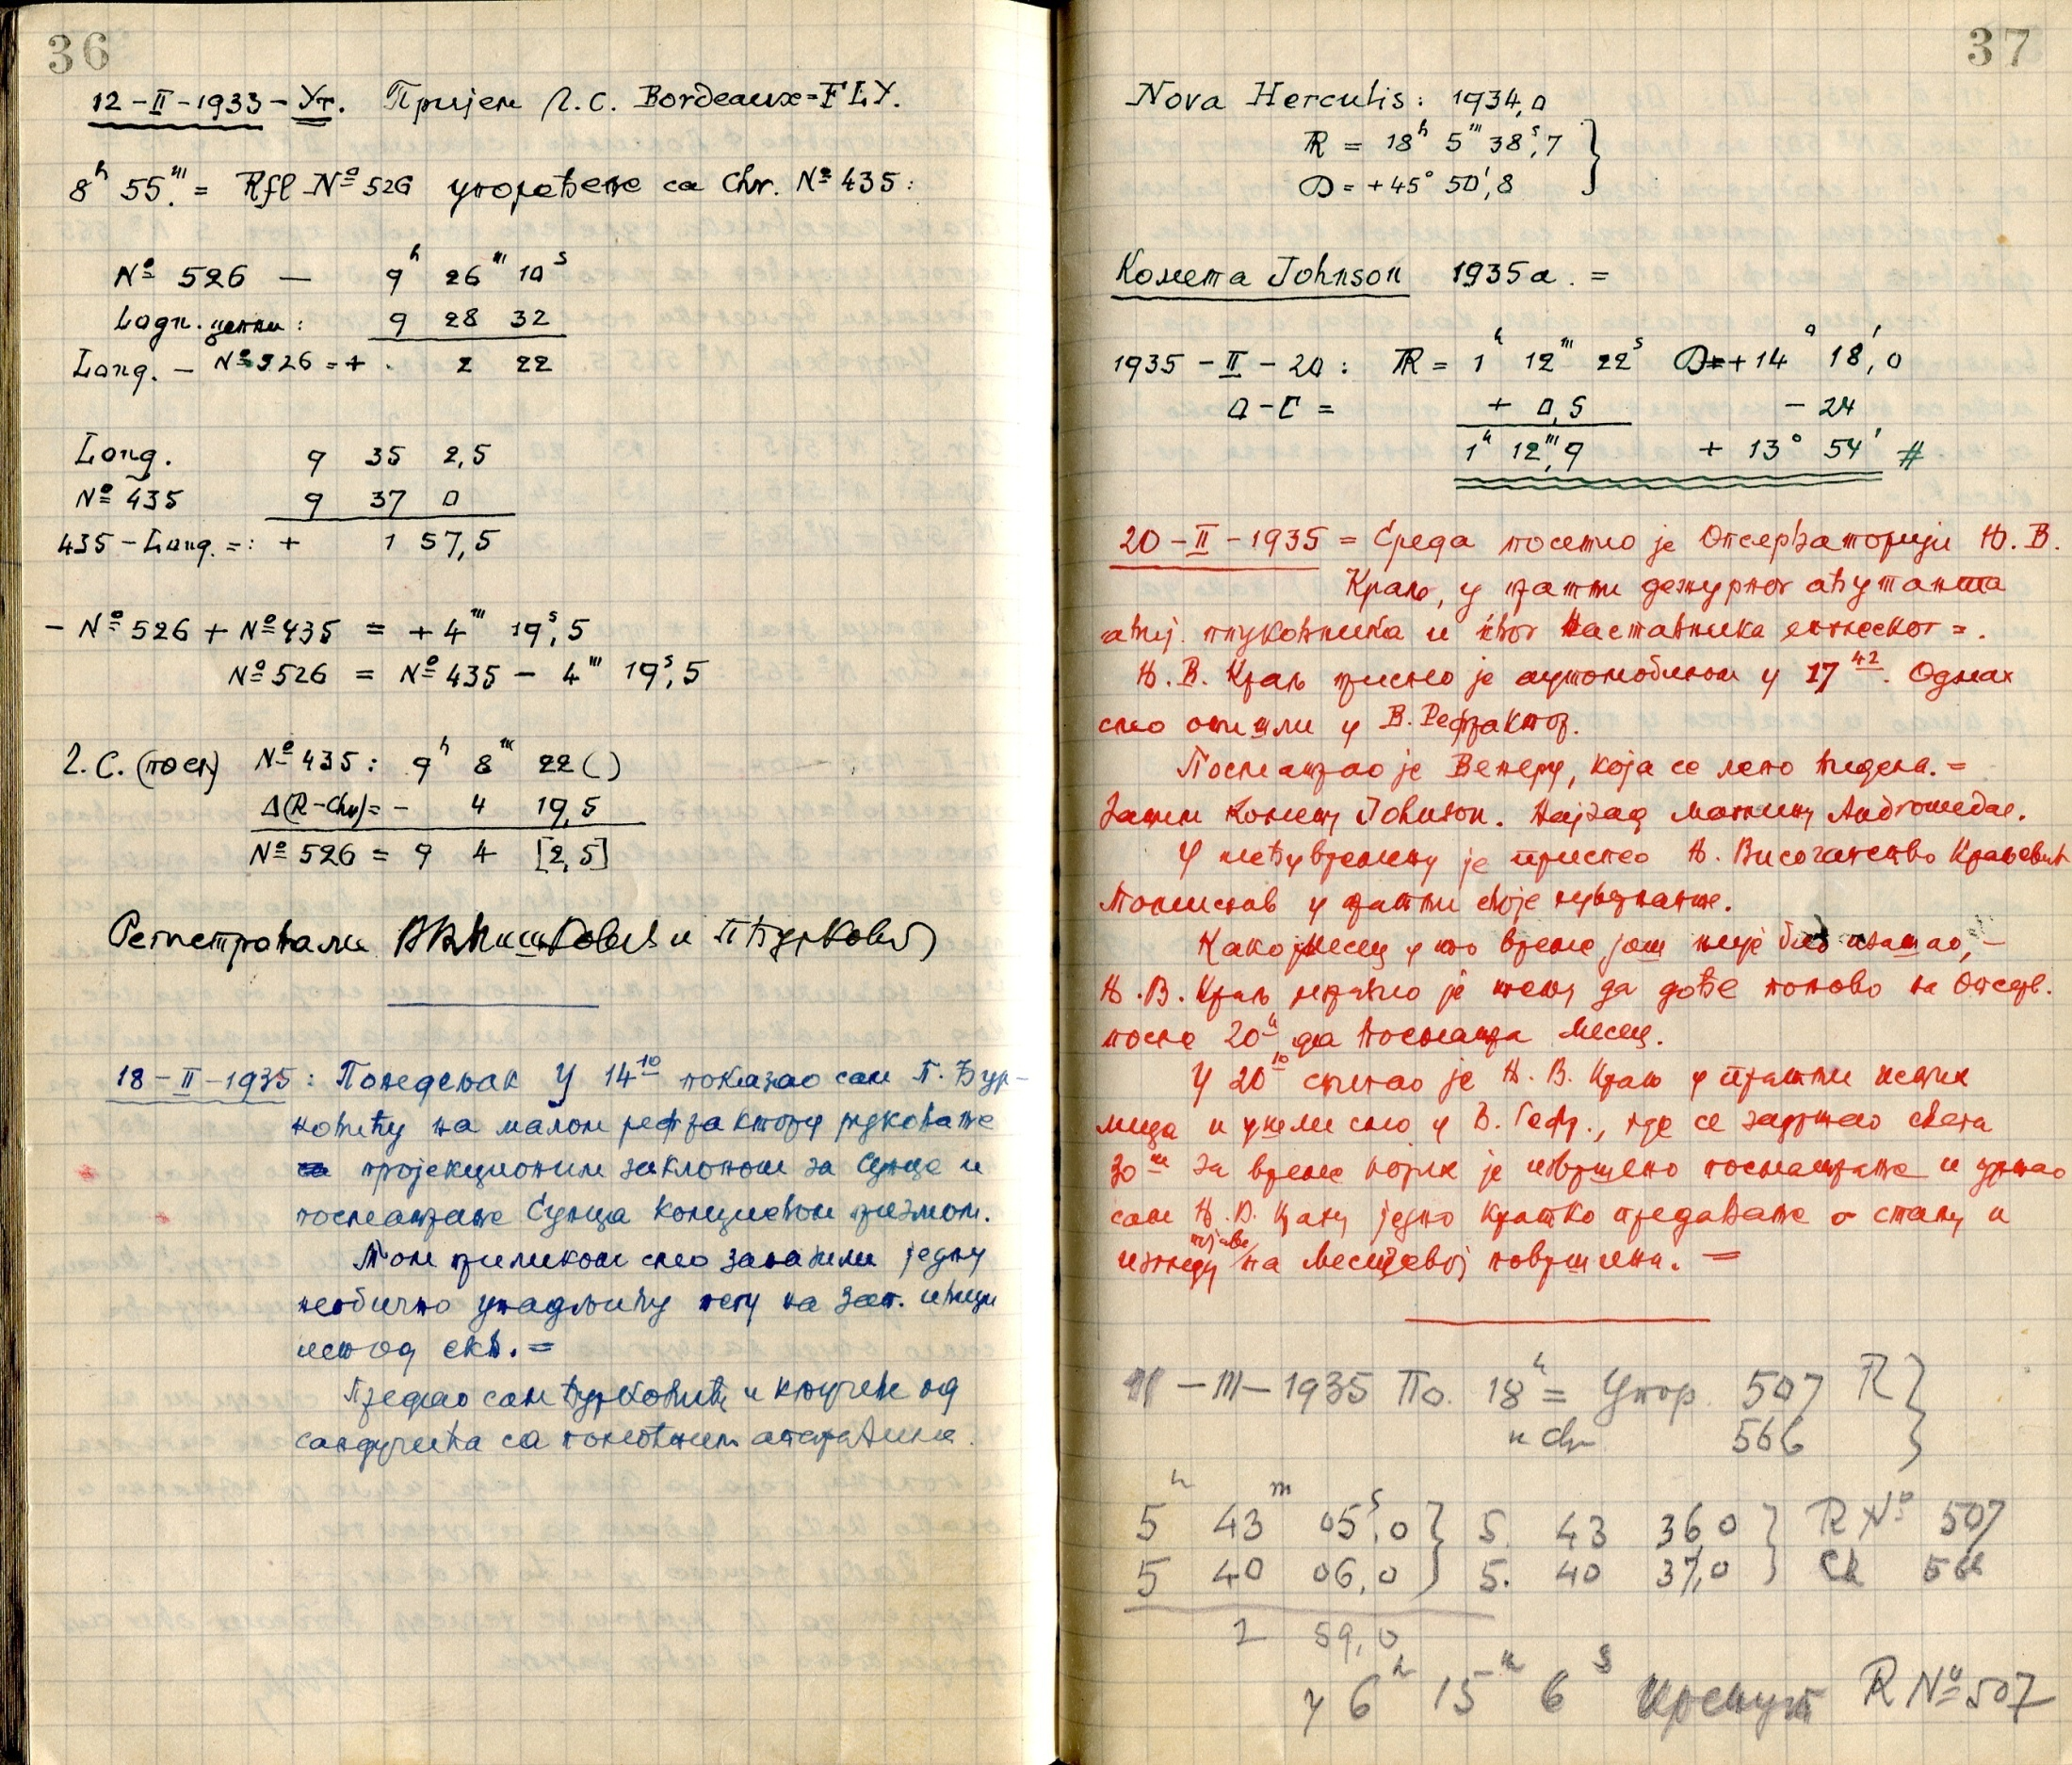 36
12-II-1933-Ут. Пријем Л.С. Bordeaux=FLY.
8h 55m = Rfl №526 упоређење са Chr. №435:
№ 526 — 9h 26m 10s
9 28 32
Long. - №526 = + 2 22
Long. 9 35 2,5
№ 435 9 37 0
435 - Long. =: + 1 57,5
- №526 + №435 = + 4m 19s,5
№526 = №435 - 4m 19s,5
№435: 9h 8m 22 ( )
Δ(R-Chr) = - 4 19,5
№526 = 9 4 [2,5]
Регистровали и ПЂурковић
18-II-1935: Понедељак У 14 10 показао сам П. Ђур-
ковићу на малом рефрактору руковање
пројекционим заклоном за Сунце и
посматрање Сунца призмом.
Том приликом смо запазили једну
необично упадљиву пегу на зап. ивици
испод екв. =
Предао сам Ђурковићу и кључеве од
сандучића са апаратима.
37
Nova Herculis: 1934,0
R = 18h 5m 38s,7
D = +45° 50',8
Комета Johnson 1935a. =
1935-II-20: R = 1h 12m 22s D = +14° 18',0
O-C = + 0,5 - 24
1h 12m,9 + 13° 54' #
20-II-1935 = Среда посетио је Опсерваторију Њ. В.
Краљ, у пратњи дежурног ађутанта
пуковника и свог наставника енглеског =.
Њ. В. Краљ приспео је аутомобилом у 17 42. Одмах
смо отишли у В. Рефрактор.
Посматрао је Венеру, која се лепо видела. =
Затим Комету Johnson. Најзад маглину Andromedae.
У међувремену је приспео Њ. Височанство Краљевић
Томислав у пратњи своје гувернанте.
Како Месец у то време још није био изашао, –
Њ. В. Краљ изразио је жељу да дође поново на Опсерв.
после 20h да посматра Месец.
У 20 10 стигао је Њ. В. Краљ у пратњи истих
лица и ушли смо у В. Рефр., где се задржао свега
30m за време којих је извршено посматрање и држао
сам Њ. В. Краљу једно кратко предавање о стању и
изгледу појава на Месечевој површини. =
-III-1935 По. 18h = Упор. 507 R
и Ch 566
5h 43m 05s,0 } 5. 43 36,0 } R № 507
5 40 06,0 } 5. 40 37,0 } Ch 566
2 59,0
у 6h 15m 6s R №507